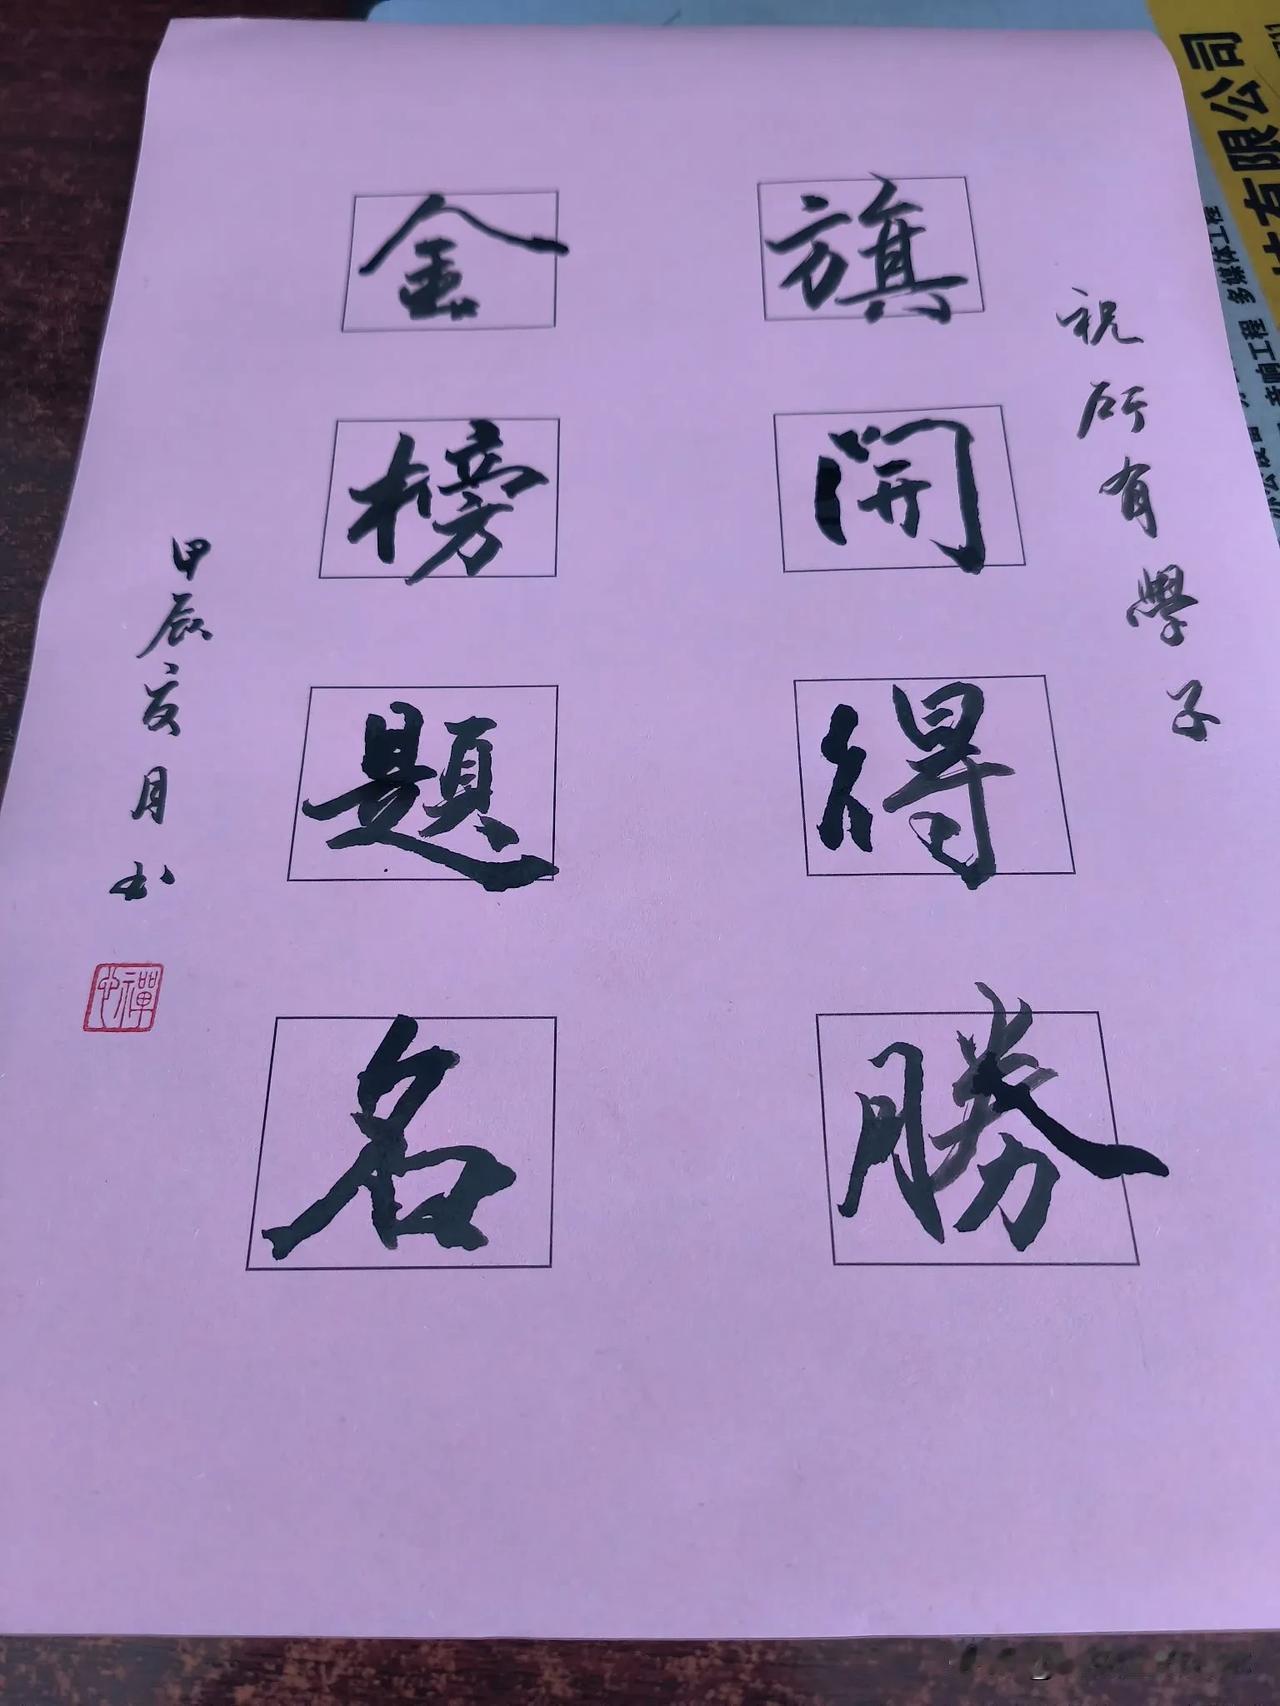 祝所有學子
旗開得勝
金榜題名
甲辰亥月书
禪心
有限公司
多媒体工程
音响工程